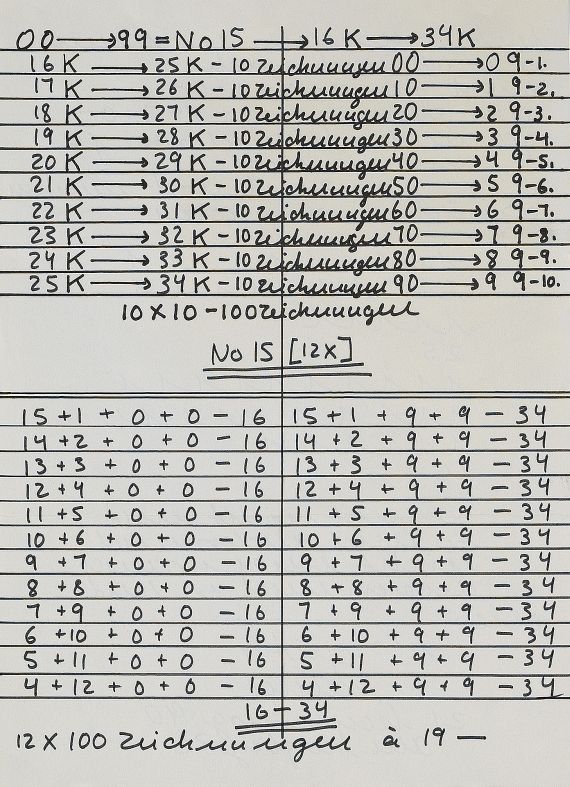 00 → 99 = No 15 → 16 K → 34 K
16 K → 25 K – 10 Zeichnungen 00 → 0 9 – 1.
17 K → 26 K – 10 Zeichnungen 10 → 1 9 – 2.
18 K → 27 K – 10 Zeichnungen 20 → 2 9 – 3.
19 K → 28 K – 10 Zeichnungen 30 → 3 9 – 4.
20 K → 29 K – 10 Zeichnungen 40 → 4 9 – 5.
21 K → 30 K – 10 Zeichnungen 50 → 5 9 – 6.
22 K → 31 K – 10 Zeichnungen 60 → 6 9 – 7.
23 K → 32 K – 10 Zeichnungen 70 → 7 9 – 8.
24 K → 33 K – 10 Zeichnungen 80 → 8 9 – 9.
25 K → 34 K – 10 Zeichnungen 90 → 9 9 – 10.
10 x 10 – 100 Zeichnungen
No 15 [12x]
15 + 1 + 0 + 0 – 16 15 + 1 + 9 + 9 – 34
14 + 2 + 0 + 0 – 16 14 + 2 + 9 + 9 – 34
13 + 3 + 0 + 0 – 16 13 + 3 + 9 + 9 – 34
12 + 4 + 0 + 0 – 16 12 + 4 + 9 + 9 – 34
11 + 5 + 0 + 0 – 16 11 + 5 + 9 + 9 – 34
10 + 6 + 0 + 0 – 16 10 + 6 + 9 + 9 – 34
9 + 7 + 0 + 0 – 16 9 + 7 + 9 + 9 – 34
8 + 8 + 0 + 0 – 16 8 + 8 + 9 + 9 – 34
7 + 9 + 0 + 0 – 16 7 + 9 + 9 + 9 – 34
6 + 10 + 0 + 0 – 16 6 + 10 + 9 + 9 – 34
5 + 11 + 0 + 0 – 16 5 + 11 + 9 + 9 – 34
4 + 12 + 0 + 0 – 16 4 + 12 + 9 + 9 – 34
16 – 34
12 x 100 Zeichnungen à 19 —